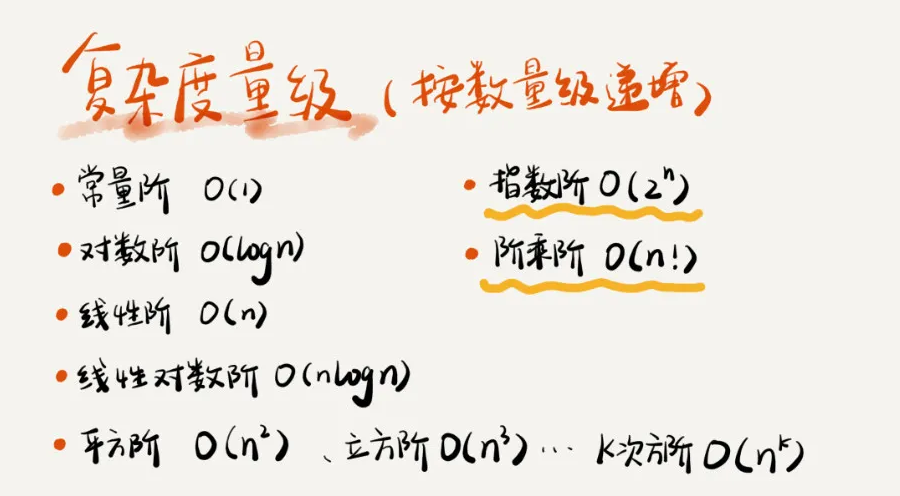 复杂度量级（按数量级递增）
• 常量阶 O(1)
• 对数阶 O(logn)
• 线性阶 O(n)
• 线性对数阶 O(nlogn)
• 平方阶 O(n²)、立方阶 O(n³) ⋯ K次方阶 O(nᵏ)
• 指数阶 O(2ⁿ)
• 阶乘阶 O(n!)